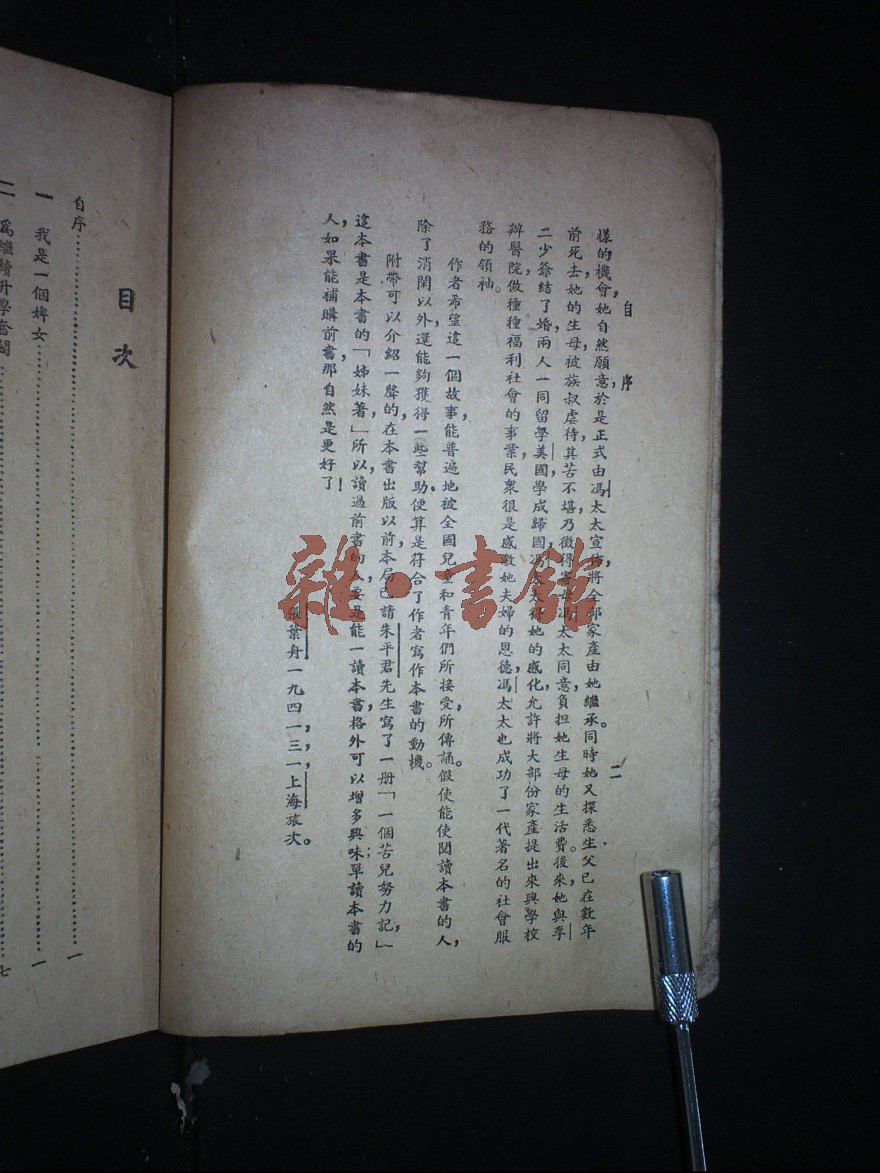 自序
二
樣的機會，她自然願意，於是正式由馮太太宣佈，將全部家產由她繼承。同時她又探悉生父已在數年
前死去，她的生母，被族叔虐待，其苦不堪，乃徵得寄母馮太太同意，負担她生母的生活費。後來，她與李
二少爺結了婚，兩人一同留學美國，學成歸國，馮太太得她的感化，允許將大部份家產提出來興學校，
辦醫院，做種種福利社會的事業，民衆很是感激她夫婦的恩德，馮太太也成功了一代著名的社會服
務的領袖。
作者希望這一個故事，能普遍地被全國兒童和青年們所接受，所傳誦。假使能使閱讀本書的人，
除了消閑以外，還能夠獲得一些幫助，便算是符合了作者寫作本書的動機。
附帶可以介紹一聲的，在本書出版以前，本局已請朱平君先生寫了一册「一個苦兒努力記，」
這本書是本書的「姊妹著，」所以讀過前書的人，要是能一讀本書，格外可以增多興味；單讀本書的
人，如果能補購前書，那自然是更好了！
張葉舟一九四一，三，一，上海旅次。
目次
自序……一
一 我是一個婢女……一
二 爲繼續升學奮鬭……七
雜·書館